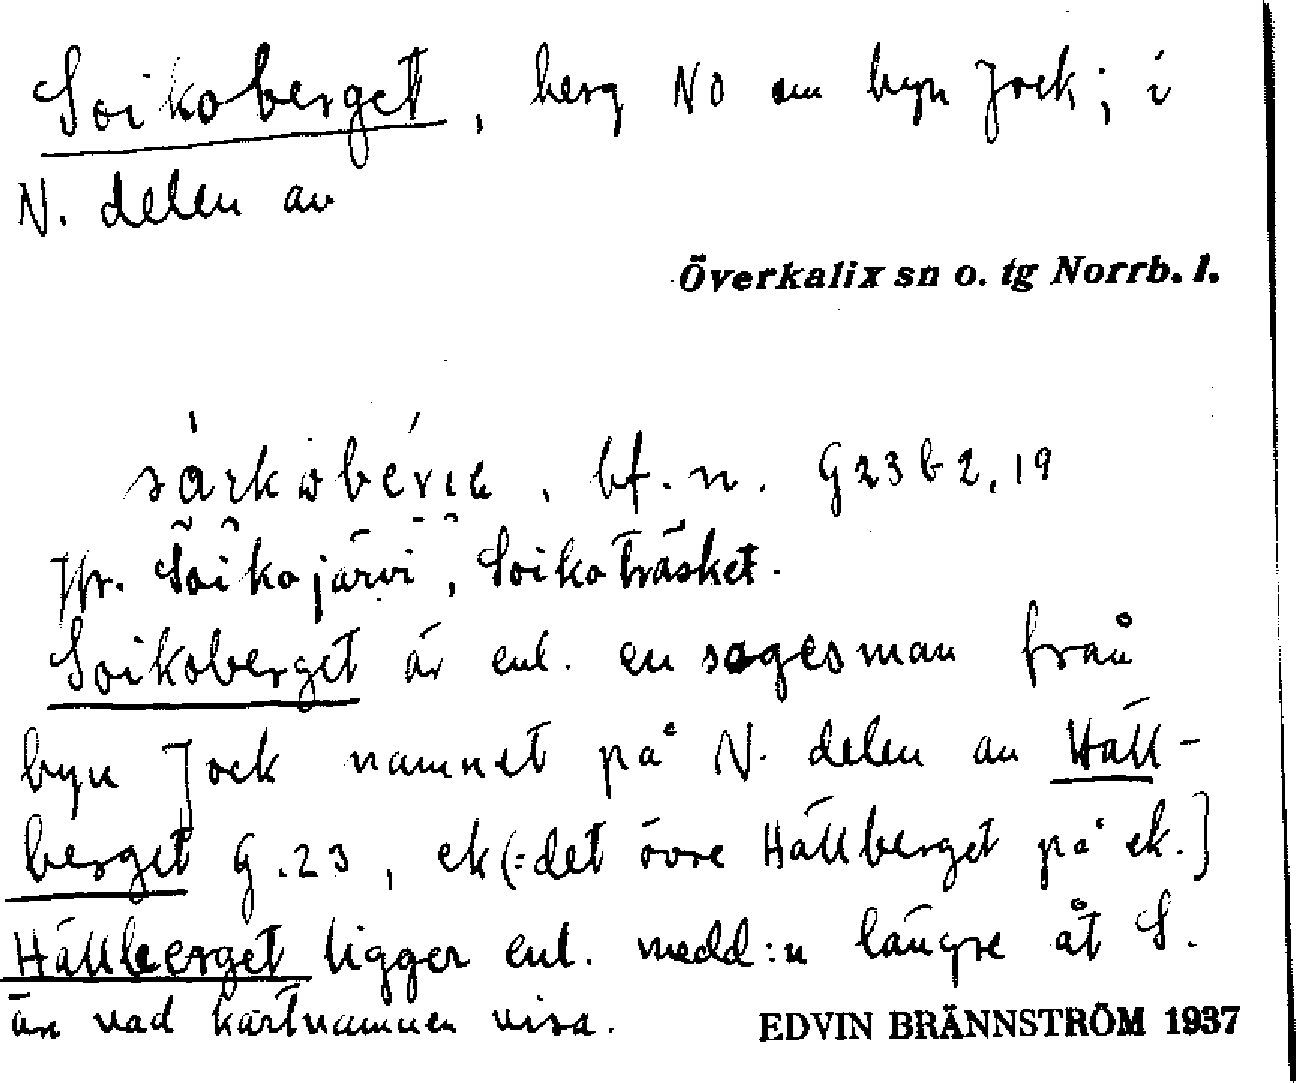 Soikoberget, berg NO om byn Jock; i
N. delen av
Överkalix sn o. tg Norrb. l.
bf. n. G23 b 2,19
Jfr. Soikojärvi, Soikoträsket.
Soikoberget är enl. en sagesman från
byn Jock namnet på N. delen av Häll-
berget G.23, ek (=det övre Hällberget på ek.]
Hällberget ligger enl. medd:n längre åt S.
än vad kartnamnen visa.
EDVIN BRÄNNSTRÖM 1937